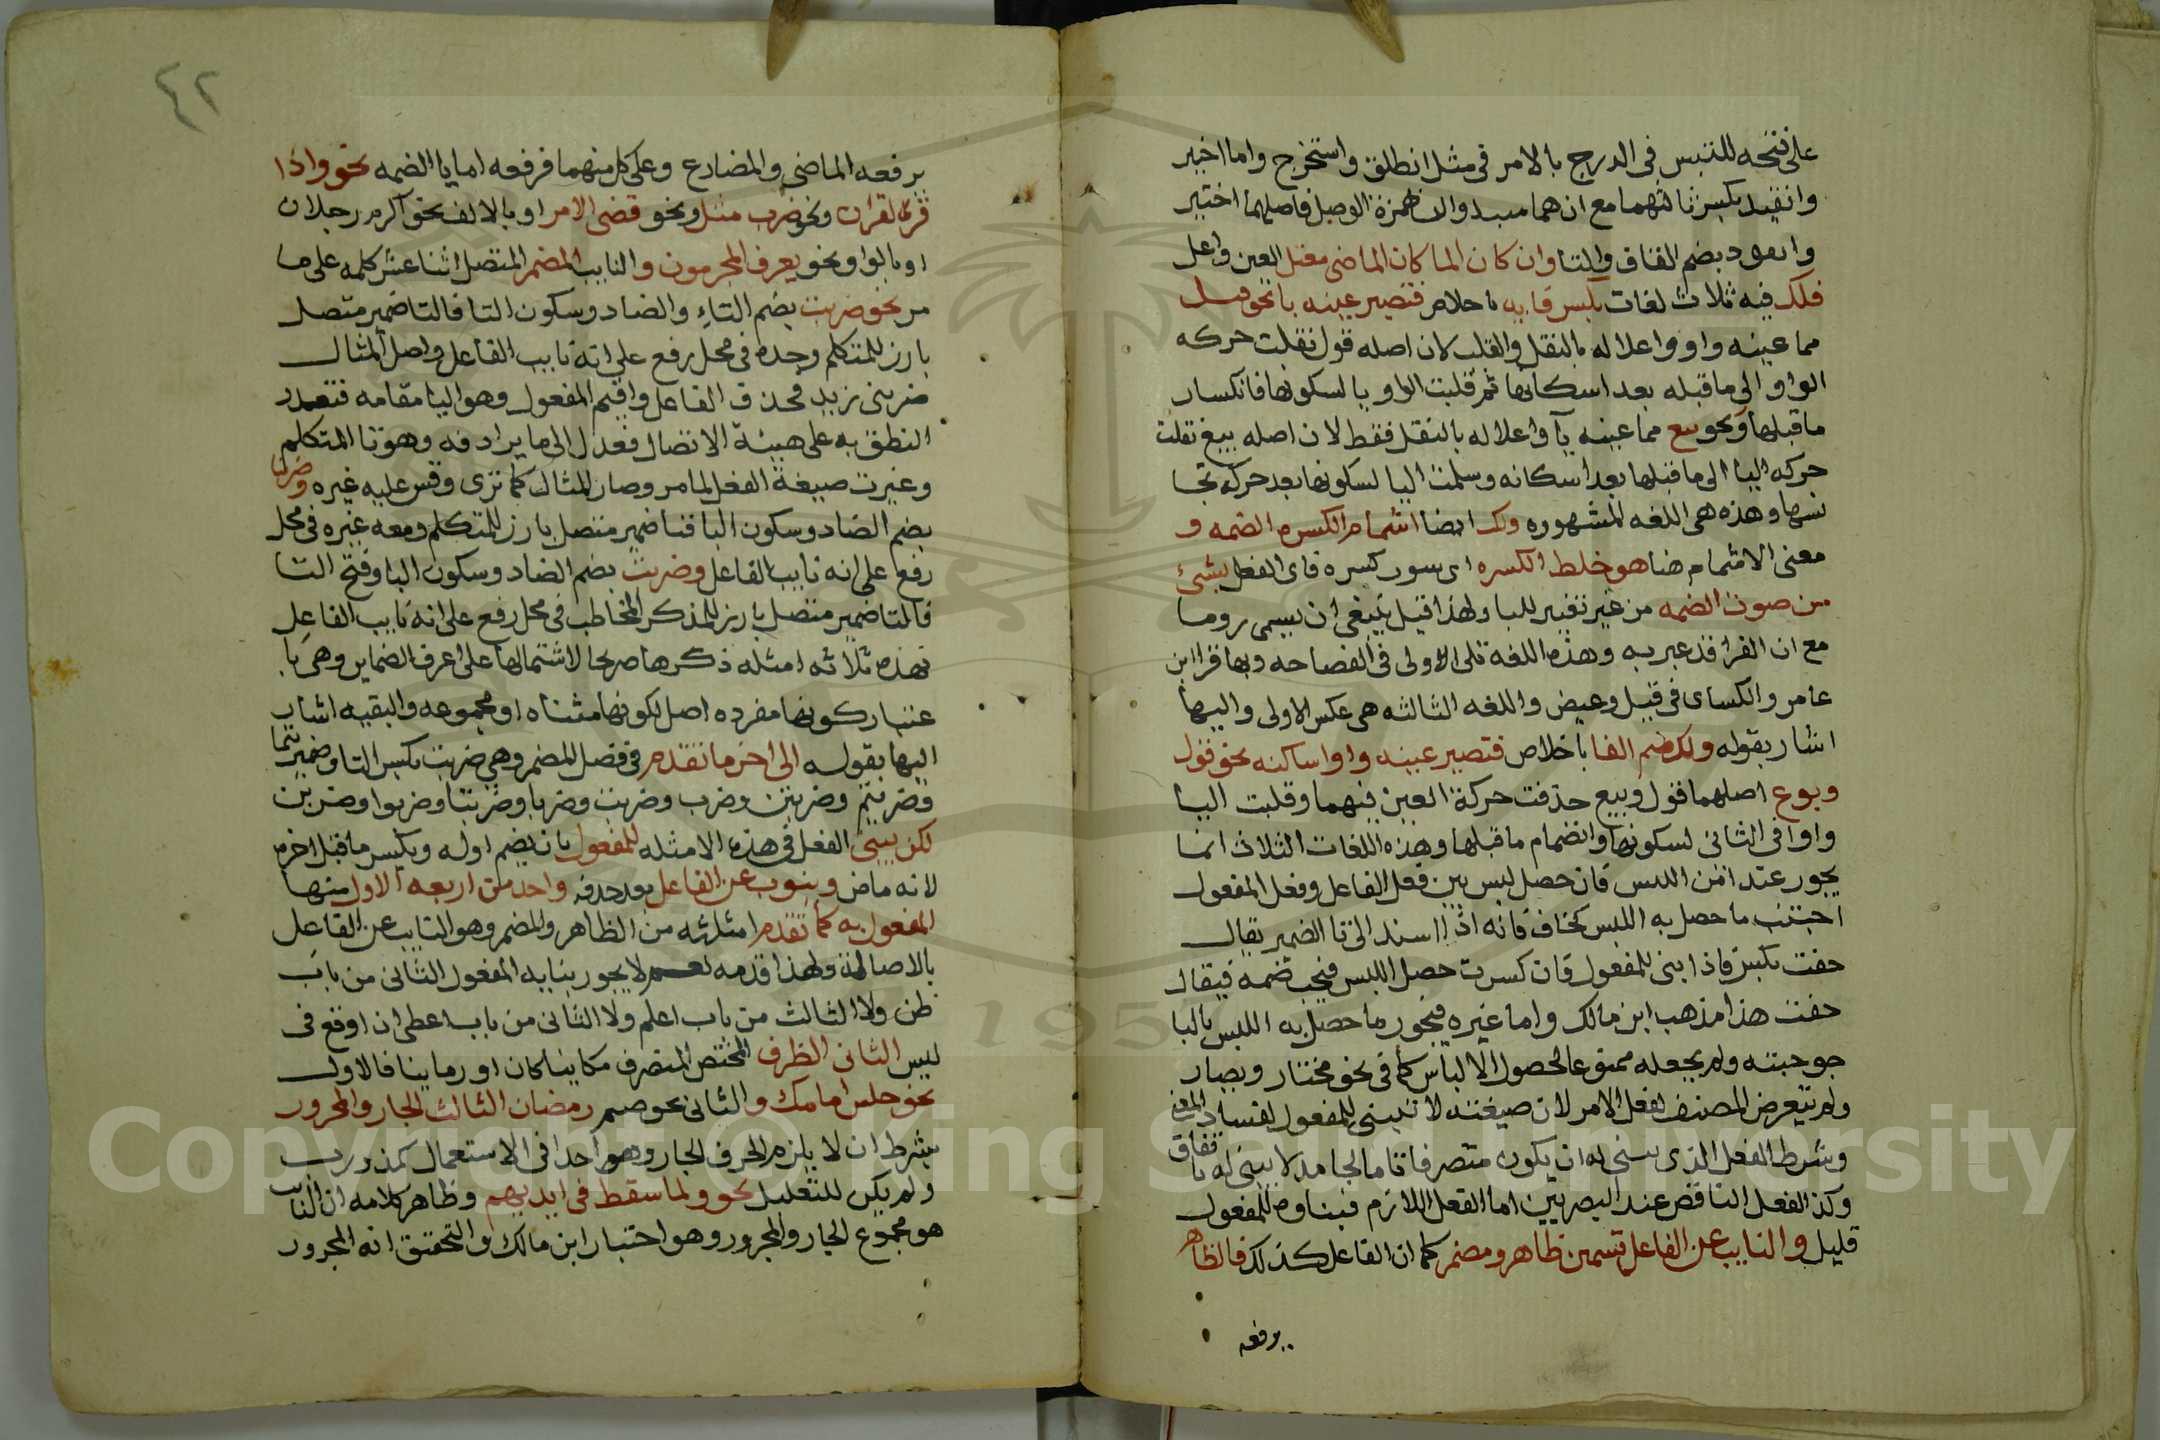 على فتحه للتبس فى الدرج بالامر فى مثل انطلق واستخرج واما اخبير
وانقيد بكسر ثالثهما مع ان هما مبدوان همزة الوصل فاصلهما اختير
وانعود بضم القاف والتا وان كان الما كان الماضى معتل العين واعل
فلك فيه ثلاث لغات بكسر فايه باخلاص فتصير عينه يا نحو قيل
مما عينه واو واعلاله بالنقل والقلب لان اصله قول نقلت حركه
الواو الى ما قبله بعد اسكانها ثم قلبت الواو يا لسكونها فانكسار
ما قبلها ونحو بيع مما عينه يآ واعلاله بالنقل فقط لان اصله بيع نقلت
حركه اليا الى ما قبلها بعد اسكانه وسلمت اليا لسكونها بعد حركه تجا
نسها وهذه هى اللغه المشهوره ولك ايضا اشمام الكسره الضمه و
معنى الاشمام هنا هو خلط الكسره اى سور كسرة فاى الفعل بشئ
من صوت الضمه من غير تغيير لليا ولهذا قيل ينبغى ان يسمى روما
مع ان الفرا قد عبر به وهذه اللغة تلى الاولى فى الفصاحه وبها قرا ابن
عامر والكساى فى قيل وغيض واللغه الثالثه هى عكس الاولى واليها
اشار بقوله ولك ضم الفا باخلاص فتصير عينه واوا ساكنه نحو قول
وبوع اصلهما قول وبيع حذفت حركة العين فيهما وقلبت اليا
واوا فى الثانى لسكونها وانضمام ما قبلها وهذه اللغات الثلاث انما
يجور عند امن اللبس فان حصل لبس بين فعل الفاعل وفعل المفعول
اجتنب ما حصل به اللبس كخاف فانه اذا اسند الى تا الضمير يقال
خفت بكسر فاذا بنى للمفعول فان كسرت حصل اللبس فيجب ضمه فيقال
خفت هذا مذهب ابن مالك واما غيره فيجور ما حصل به اللبس بالبا
جوحيته ولم يجعله ممتوعا لحصول الالباس كما فى نحو مختار ويصار
ولم يتعرض المصنف لفعل الامر لان صيغته لا تبنى للمفعول لفساد المعنى
وشرط الفعل الذى يبنى له ان يكون متصرفا تاما لجامد لا يبنى له باتفاق
وكذ الفعل الناقص عند البصريين اما الفعل اللازم فبناوه للمفعول
قليل والنايب عن الفاعل قسمين ظاهر ومضمر كما ان الفاعل كذلك فالظاهر
يرفعه
٤٢
يرفعه الماضى والمضارع وعلى كل منهما فرفعه اما يا الضمه نحو واذا
قرئ القران ونحو ضرب مثل ونحو قضى الامر او بالالف نحو آكرم رجلان
او بالواو نحو يعرف المجرمون والنايب المضمر المتصل اثنا عشر كلمه على ما
مر نحو ضربت بضم التاء والضاد وسكون التا فالتا ضمير متصل
بارز للمتكلم وحده فى محل رفع على انه نايب الفاعل واصل المثال
ضربنى زيد فحذف الفاعل واقيم المفعول وهو اليا مقامه فتعذر
النطق به على هيئة الاتصال فعدل الى ما يرادفه وهو تا المتكلم
وغيرت صيغة الفعل لما مر وصار المثال كما ترى وقس عليه غيره وضربنا
بضم الضاد وسكون البا فنا ضمير متصل بارز للمتكلم ومعه غيره فى محل
رفع على انه نايب الفاعل وضربت بضم الضاد وسكون البا وفتح التا
فالتا ضمير متصل بارز للمذكر المخاطب فى محل رفع على انه نايب الفاعل
فهذه ثلاثه امثله ذكرها صريحا لاشتمالها على اعرف الضماير وهى با
عتبار كونها مفرده اصل لكونها مثناه او مجموعه والبقيه اشار
اليها بقوله الى اخر ما تقدم فى فصل المضمر وهى ضربت بكسر التا وضربتما
وضربتم وضربتن وضرب وضربت وضربا وضربتا وضربوا وضربن
لكن يبنى الفعل فى هذه الامثله للمفعول بان يضم اوله ويكسر ما قبل اخره
لانه ماض وينوب عن الفاعل بعد حذفه واحد من اربعه الاول منها
المفعول به كما تقدم امثلته من الظاهر والمضمر وهو النايب عن الفاعل
بالاصالة ولهذا قدمه نعم لا يجور بنايه المفعول الثانى من باب
ظن ولا الثالث من باب اعلم ولا الثانى من باب اعطى ان اوقع فى
لبس الثانى الظرف المختص المتصرف مكانيا كان او زمانيا فالاول
نحو جلس امامك والثانى نحو صيم رمضان الثالث الجار والمجرور
بشرط ان لا يلزم الحرف الجار وهو احدا فى الاستعمال كمذ ورب
ولم يكن للتعليل نحو ولما سقط فى ايديهم وظاهر كلامه ان النايب
هو مجموع الجار والمجرور وهو اختيار ابن مالك والتحقيق انه المجرور
Copyright © King Saud University
1957